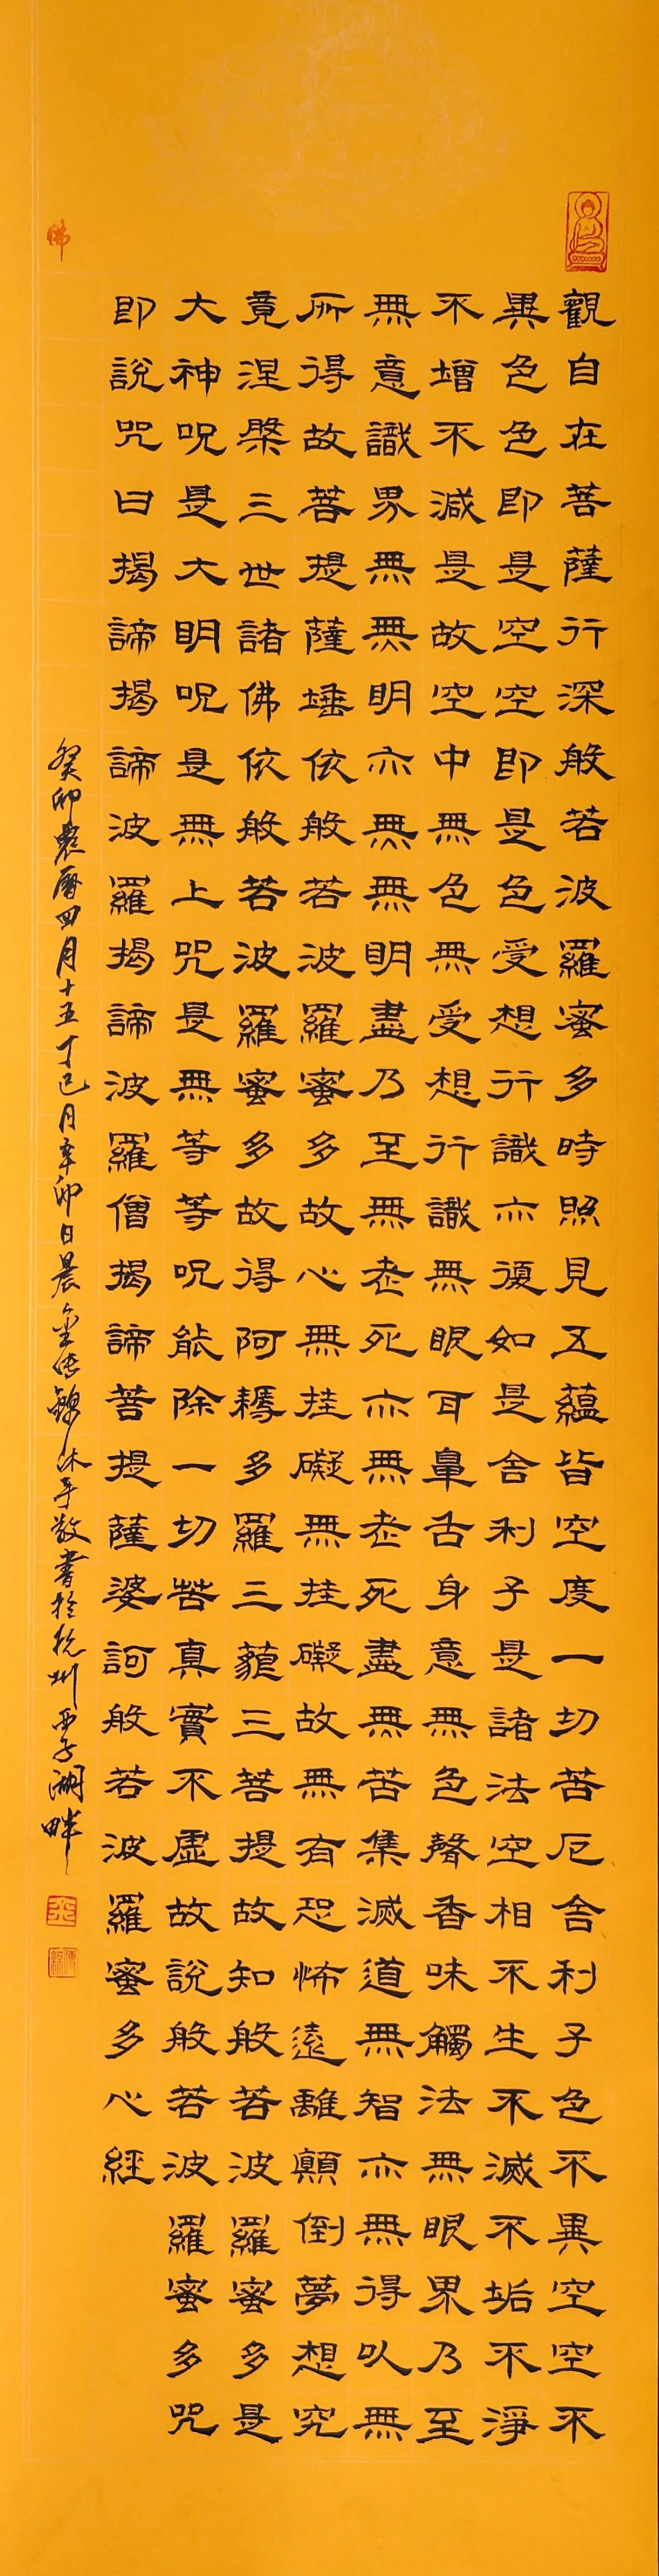 觀自在菩薩行深般若波羅蜜多時照見五蘊皆空度一切苦厄舍利子色不異空空不
異色色即是空空即是色受想行識亦復如是舍利子是諸法空相不生不滅不垢不淨
不增不減是故空中無色無受想行識無眼耳鼻舌身意無色聲香味觸法無眼界乃至
無意識界無無明亦無無明盡乃至無老死亦無老死盡無苦集滅道無智亦無得以無
所得故菩提薩埵依般若波羅蜜多故心無挂礙無挂礙故無有恐怖遠離顛倒夢想究
竟涅槃三世諸佛依般若波羅蜜多故得阿耨多羅三藐三菩提故知般若波羅蜜多是
大神呪是大明呪是無上咒是無等等呪能除一切苦真實不虛故說般若波羅蜜多咒
即說咒曰揭諦揭諦波羅揭諦波羅僧揭諦菩提薩婆訶般若波羅蜜多心經
佛
癸卯農曆四月十五丁巳月辛卯日晨錦沐手敬書於杭州西子湖畔